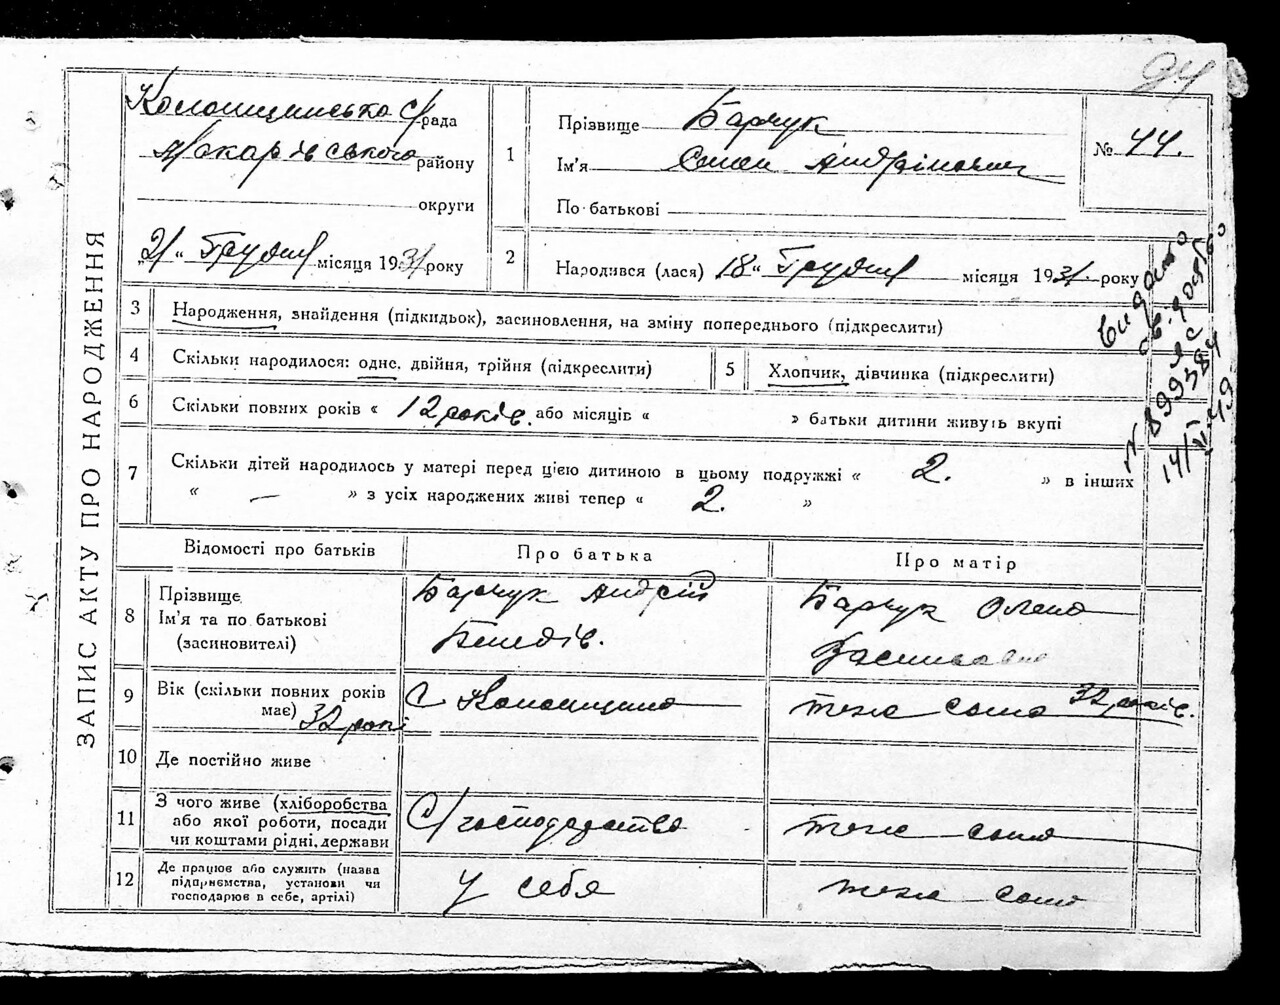 94
ЗАПИС АКТУ ПРО НАРОДЖЕННЯ
Колонщинська с/рада
Макарівського району
округи
„21" Грудня місяця 1931 року
1
Прізвище Барчук
Ім'я Андрійович
По-батькові
№ 44.
2
Народився (лася) 18" Грудня місяця 1931. року
3 Народження, знайдення (підкидьок), засиновлення, на зміну попереднього (підкреслити)
4 Скільки народилося: одне, двійня, трійня (підкреслити)
5 Хлопчик, дівчинка (підкреслити)
6 Скільки повних років « 12 років. або місяців « » батьки дитини живуть вкупі
7 Скільки дітей народилось у матері перед цією дитиною в цьому подружжі « 2. » в інших
« — » з усіх народжених живі тепер « 2. »
Видано
св. доязб
ЯС
N 899384
14/V-49
Відомості про батьків
Про батька
Про матір
8
Прізвище
Ім'я та по батькові
(засиновителі)
Барчук Андрій
Барчук Олена
Василівна
9
Вік (скільки повних років
має) 32 рокі
С Колонщина
теж сама 32 років.
10 Де постійно живе
11
З чого живе (хліборобства
або якої роботи, посади
чи коштами рідні, держави
С/господарство
теж сама
12
Де працює або служить (назва
підприємства, установи чи
господарює в себе, артілі)
у себя
теж сама